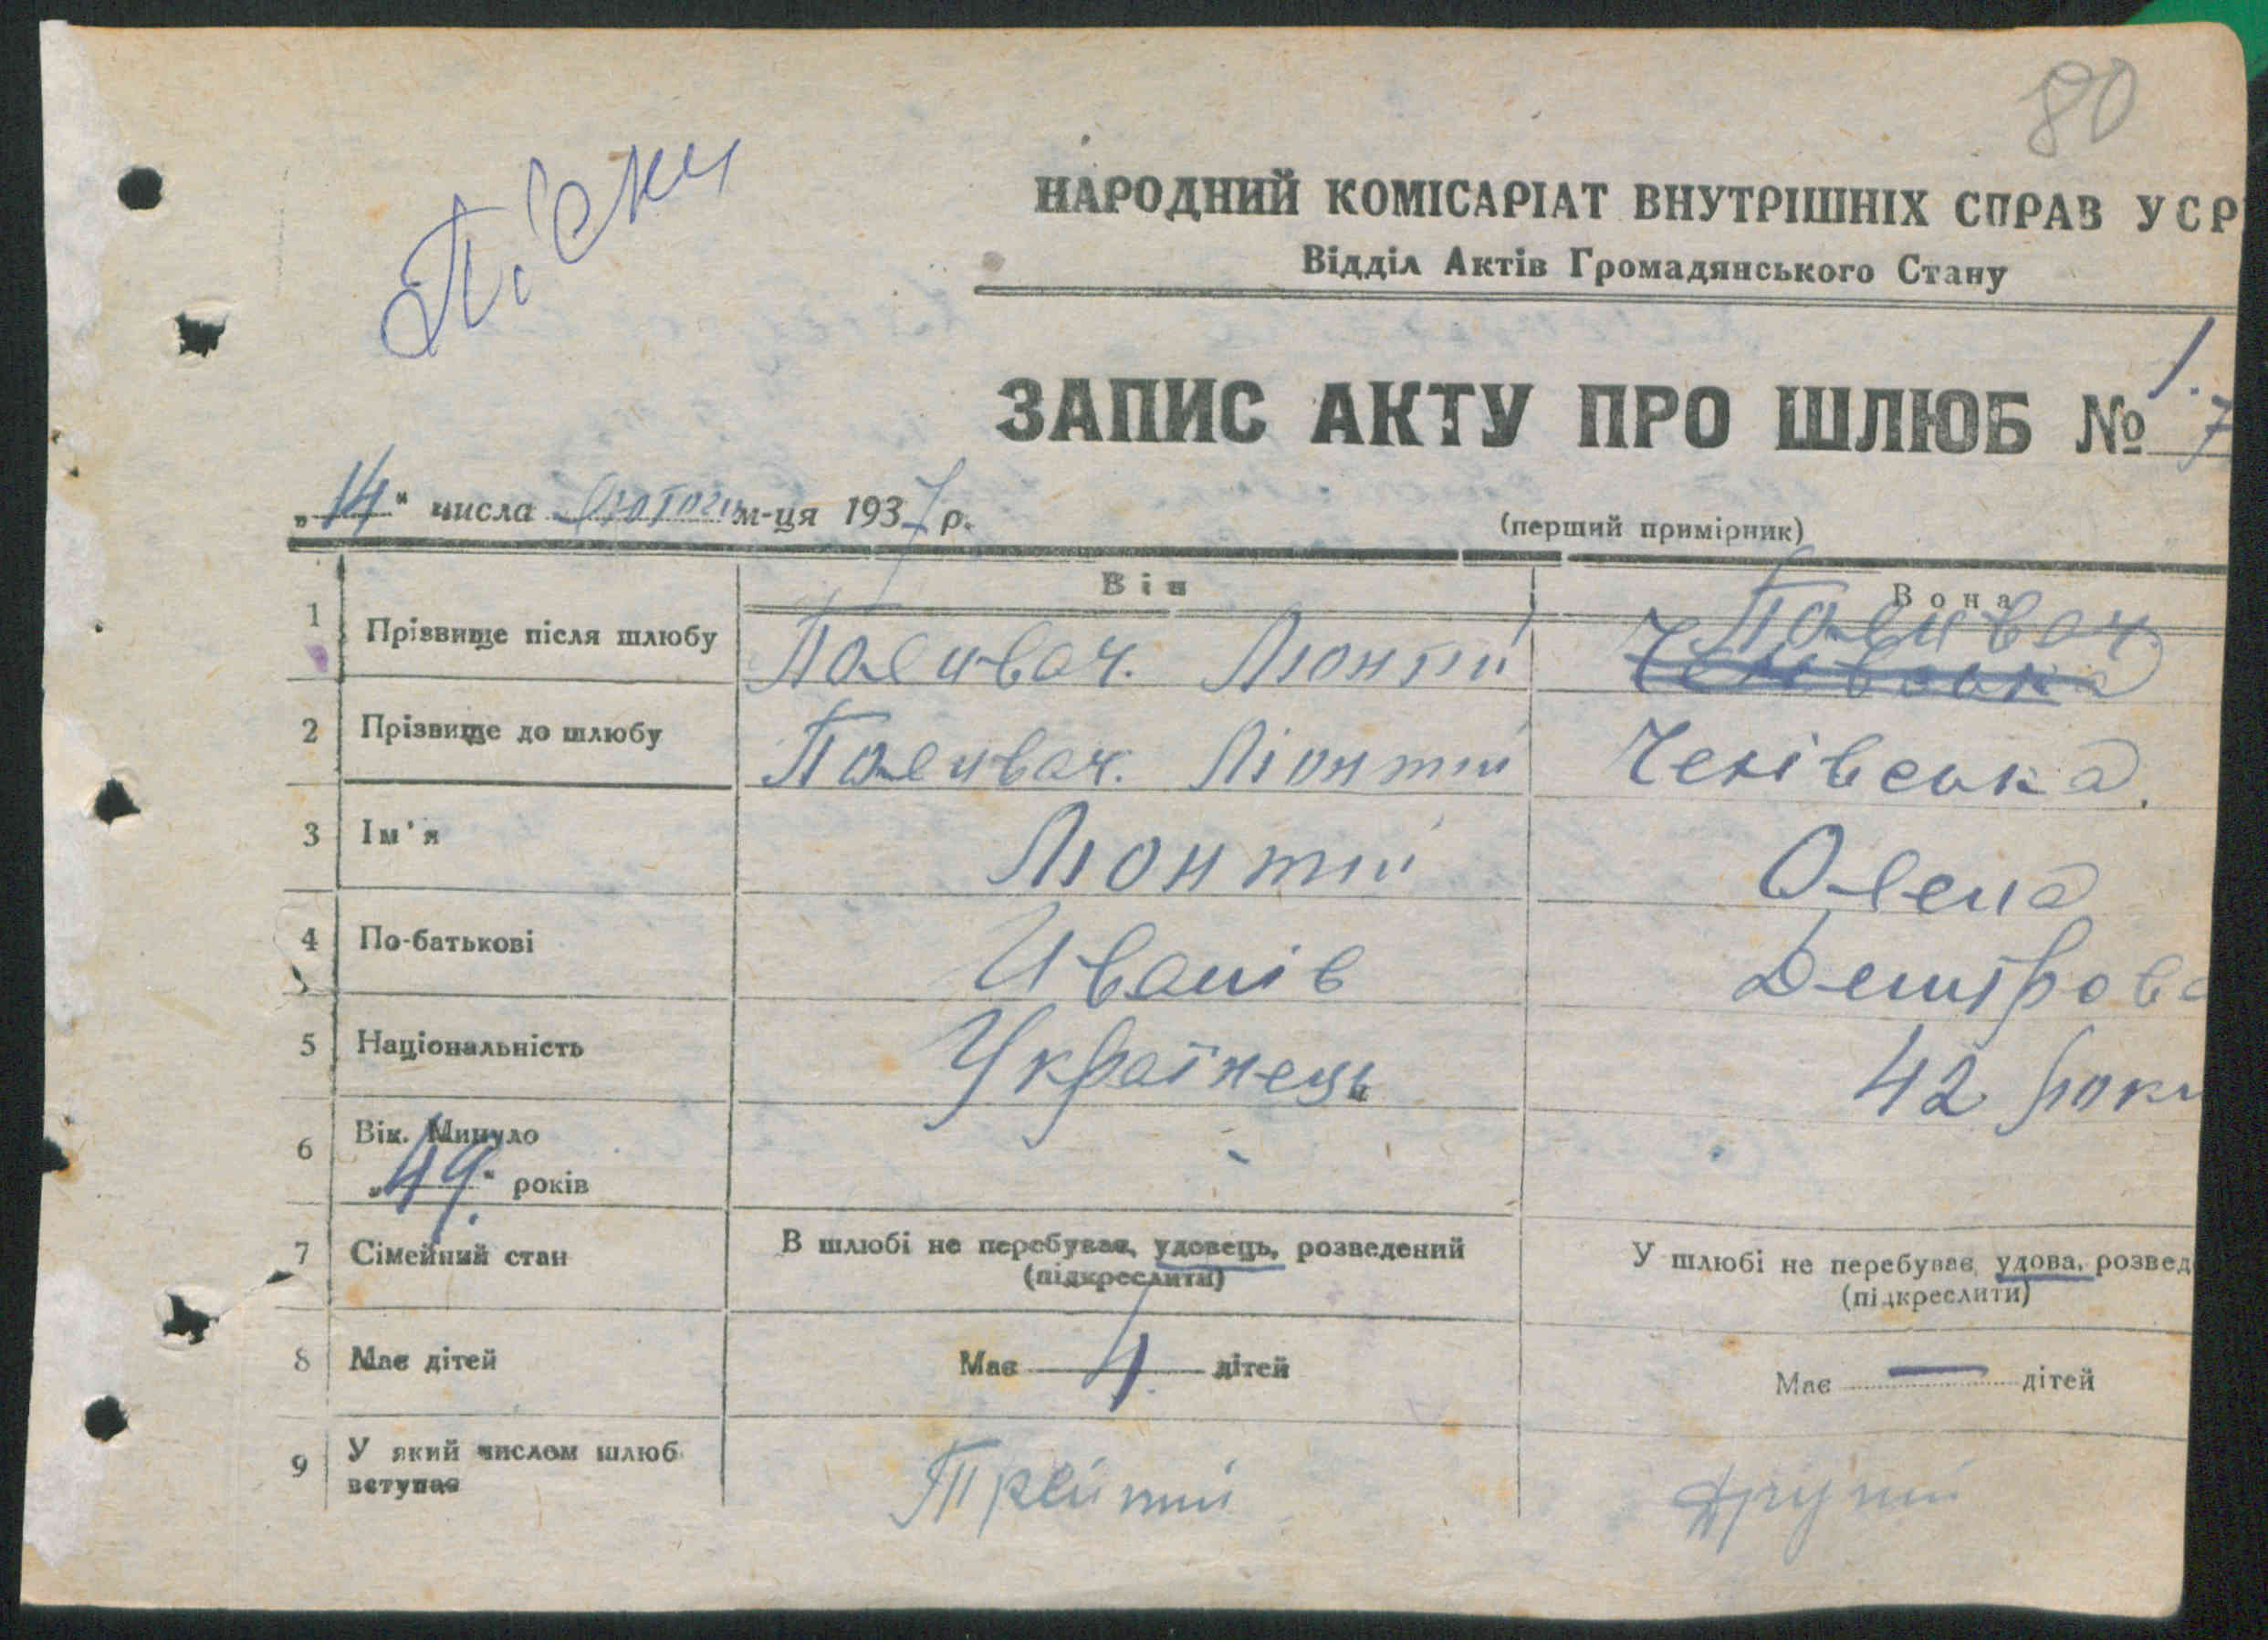 80
Піски
НАРОДНИЙ КОМІСАРІАТ ВНУТРІШНІХ СПРАВ УСР
Відділ Актів Громадянського Стану
ЗАПИС АКТУ ПРО ШЛЮБ № 1. 7
„14" числа Лютого м-ця 1937 р.
(перший примірник)
Він Вона
1 Прізвище після шлюбу Паливач. Ліонтій Паливач
2 Прізвище до шлюбу Паливач. Ліонтій Чехівська.
3 Ім'я Ліонтій Олена
4 По-батькові Иванів Демтрова
5 Національність Українець 42 роки
6 Вік. Минуло
„49." років
7 Сімейний стан В шлюбі не перебував, удовець, розведений У шлюбі не перебував, удова, розвед
(підкреслити) (підкреслити)
8 Має дітей Має 4. дітей Має — дітей
9 У який числом шлюб
вступає Трейтий Другий